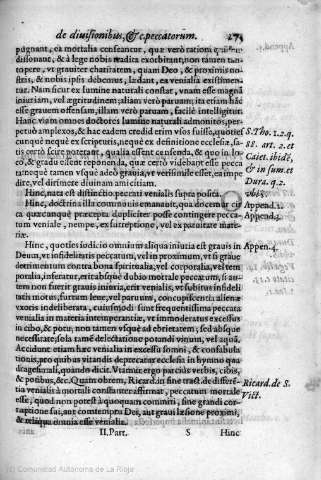 de diuisionibus, & c. peccatorum. 273
pugnant, ea mortalia censeantur, quæ verò rationi
dissonant, & à lege nobis tradita exorbitant, non tamen tan
topere, vt grauiter charitatem, quam Deo, & proximis no-
stris, & nobis ipsis debemus, lædant, ea venialia existimen-
tur. Nam sicut ex lumine naturali constat, vnam esse magnā
iniuriam, vel ægritudinem; aliam verò paruam; ita etiam hāc
esse grauem offensam, illam verò paruam, facilè intelligitur.
Hanc viam omnes doctores lumine naturali admoniti, per-
petuò amplexos, & hac eadem credid erim vsos fuisse, quoties
cunque nequè ex scripturis, nequè ex definitione ecclesiæ sa-
tis certò scire poterant, qualia essent censenda, & quo in lo-
co, & gradu essent reponenda, quæ certò videbant esse pecca
ta; nequè tamen vsquè adeò grauia, vt verisimile esset, ea impe
dire, vel dirimere diuinam amicitiam.
Hinc, nata est distinctio peccati venialis supra posita.
Hinc, doctrina illa communis emanauit, qua docemur cir
ca quæcunque præcepta dupliciter posse contingere pecca-
tum veniale, nempè, ex surreptione, vel ex paruitate mate-
riæ.
Hinc, quoties iudicio omnium aliqua iniuria est grauis in
Deum, vt infidelitatis peccatum, vel in proximum, vt si graue
detrimentum contra bona spiritualia, vel corporalia, vel tem
poralia, inferatur, erit absque dubio mortale peccatum, si au-
tem non fuerit grauis iniuria, erit venialis, vt subitus infideli
tatis motus, furtum leue, vel paruum, concupiscentia alienæ
vxoris indeliberata, cuiusmodi sunt frequentissima peccata
venialia in materia intemperantiæ, vt immoderatus excessus
in cibo, & potu, non tamen vsquè ad ebrietatem, sed absque
necessitate, sola tamē delectatione potandi vinum, vel aquā.
Accidunt etiam hæc venialia in excessu somni, & confabula
tionis, pro quibus vitandis deprecatur ecclesia in hymno qua
dragesimali, quando dicit. Vtamur ergo parcius verbis, cibis,
& potibus, &c. Quam obrem, Ricard. in sine tract. de differē-
tia venialis à mortali constanter affirmat, peccatum mortale
esse, quod non potest à quoquam committi, sine grandi cor-
ruptione sui, aut contemptu Dei, aut graui læsione proximi,
& reliqua omnia esse venialia.
II. Part. S Hinc
S. Tho. 1.2. q.
88. art. 2. et
Caiet. ibidē,
& in sum. et
Dura. q. 2.
vbi s.
Append. 2.
Append. 3.
Appen. 4.
Ricard. de S.
Vict.
(c) Comunidad Autónoma de La Rioja